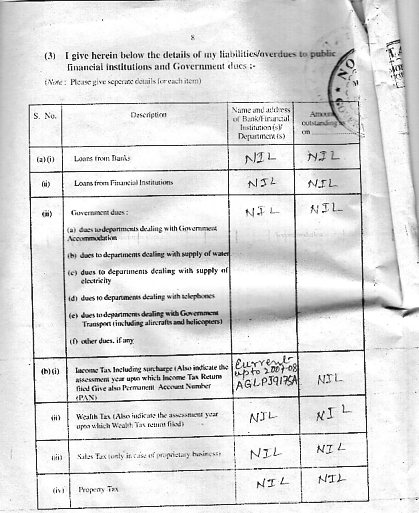 8
(3) I give herein below the details of my liabilities/overdues to public
financial institutions and Government dues :-
(Note : Please give seperate details for each item)
S. No.
Description
Name and address
of Bank/Financial
Institution (s)/
Department (s)
Amount
outstanding as
on
(a) (i) Loans from Banks NIL NIL
(ii) Loans from Financial Institutions NIL NIL
(iii) Government dues : NIL NIL
(a) dues to departments dealing with Government
Accommodation
(b) dues to departments dealing with supply of water
(c) dues to departments dealing with supply of
electricity
(d) dues to departments dealing with telephones
(e) dues to departments dealing with Government
Transport (including aircrafts and helicopters)
(f) other dues, if any
(b) (i) Income Tax Including surcharge (Also indicate the
assessment year upto which Income Tax Return
filed Give also Permanent Account Number
(PAN)
Current
upto 2007-08
AGLPJ9175A
NIL
(ii) Wealth Tax (Also indicate the assessment year
upto which Wealth Tax return filed)
NIL NIL
(iii) Sales Tax (only in case of proprietary business) NIL NIL
(iv) Property Tax NIL NIL